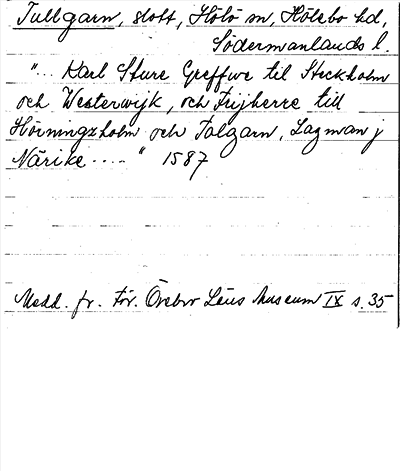 Tullgarn, slott, Hölö sn, Hölebo hd,
Södermanlands l.
"... Karl Sture Greffwe til Stockholm
och Westerwijk, och Frijherre till
Hörningzholm och Tolgarn, Lagman j
Närike ....." 1587
Medd. fr. För. Örebro Läns Museum IX s. 35